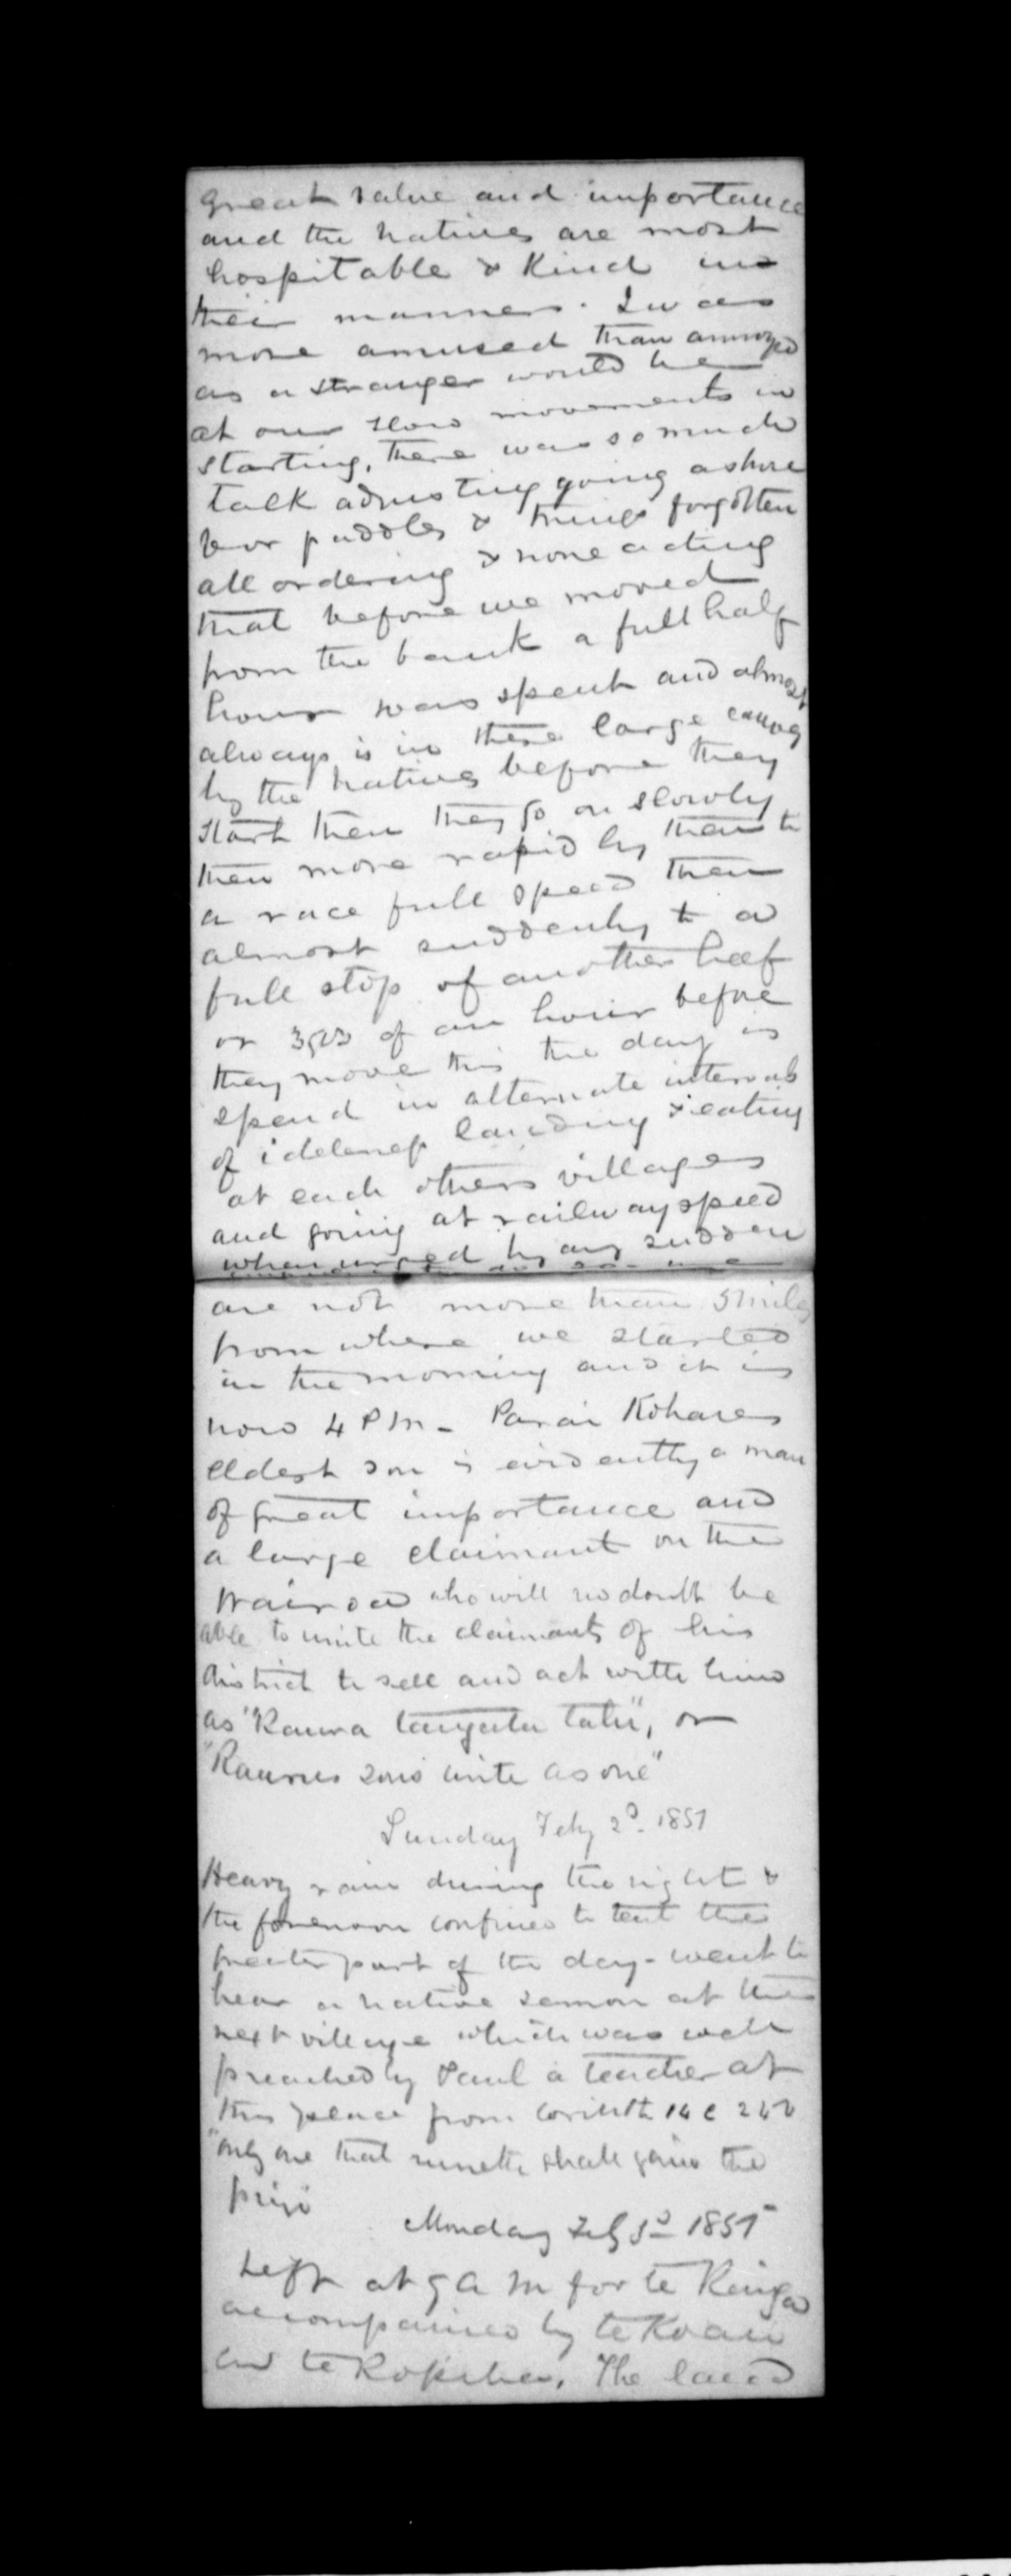 great value and importance
and the natives are most
hospitable & kind in
their manners. I was
more amused than annoyed
as a stranger would be
at our slow movements in
starting, there was so much
talk adjusting going ashore
for paddles & things forgotten
all ordering & none acting
that before we moved
from the bank a full half
hour was spent and almost
always is in these large canoes
by the natives before they
start then they go on slowly
then more rapidly then to
a race full speed then
almost suddenly to a
full stop of another half
or of an hour before
they move this the day is
spend in alternate intervals
of idleness landing & eating
at each others villages
and going at railway speed
when urged by any sudden
are not more than 5 miles
from where we started
in the morning and it is
now 4 PM - Kohares
eldest son is evidently a man
of great importance and
a large claimant on the
Wairoa who will no doubt be
able to unite the claimants of his
district to sell and act with him
as "tangata tahi", or
sons unite as one"
Sunday Feby 2d. 1851
Heavy rain during the night &
the forenoon confined to tent the
greater part of the day - went to
hear a native sermon at the
next village which was well
preached by Paul a teacher at
this place from Corinth
"only one that runneth shall gain the
prize
Monday Feb 3d 1851
Left at AM for te Reinga
accompanied by te
and te The land